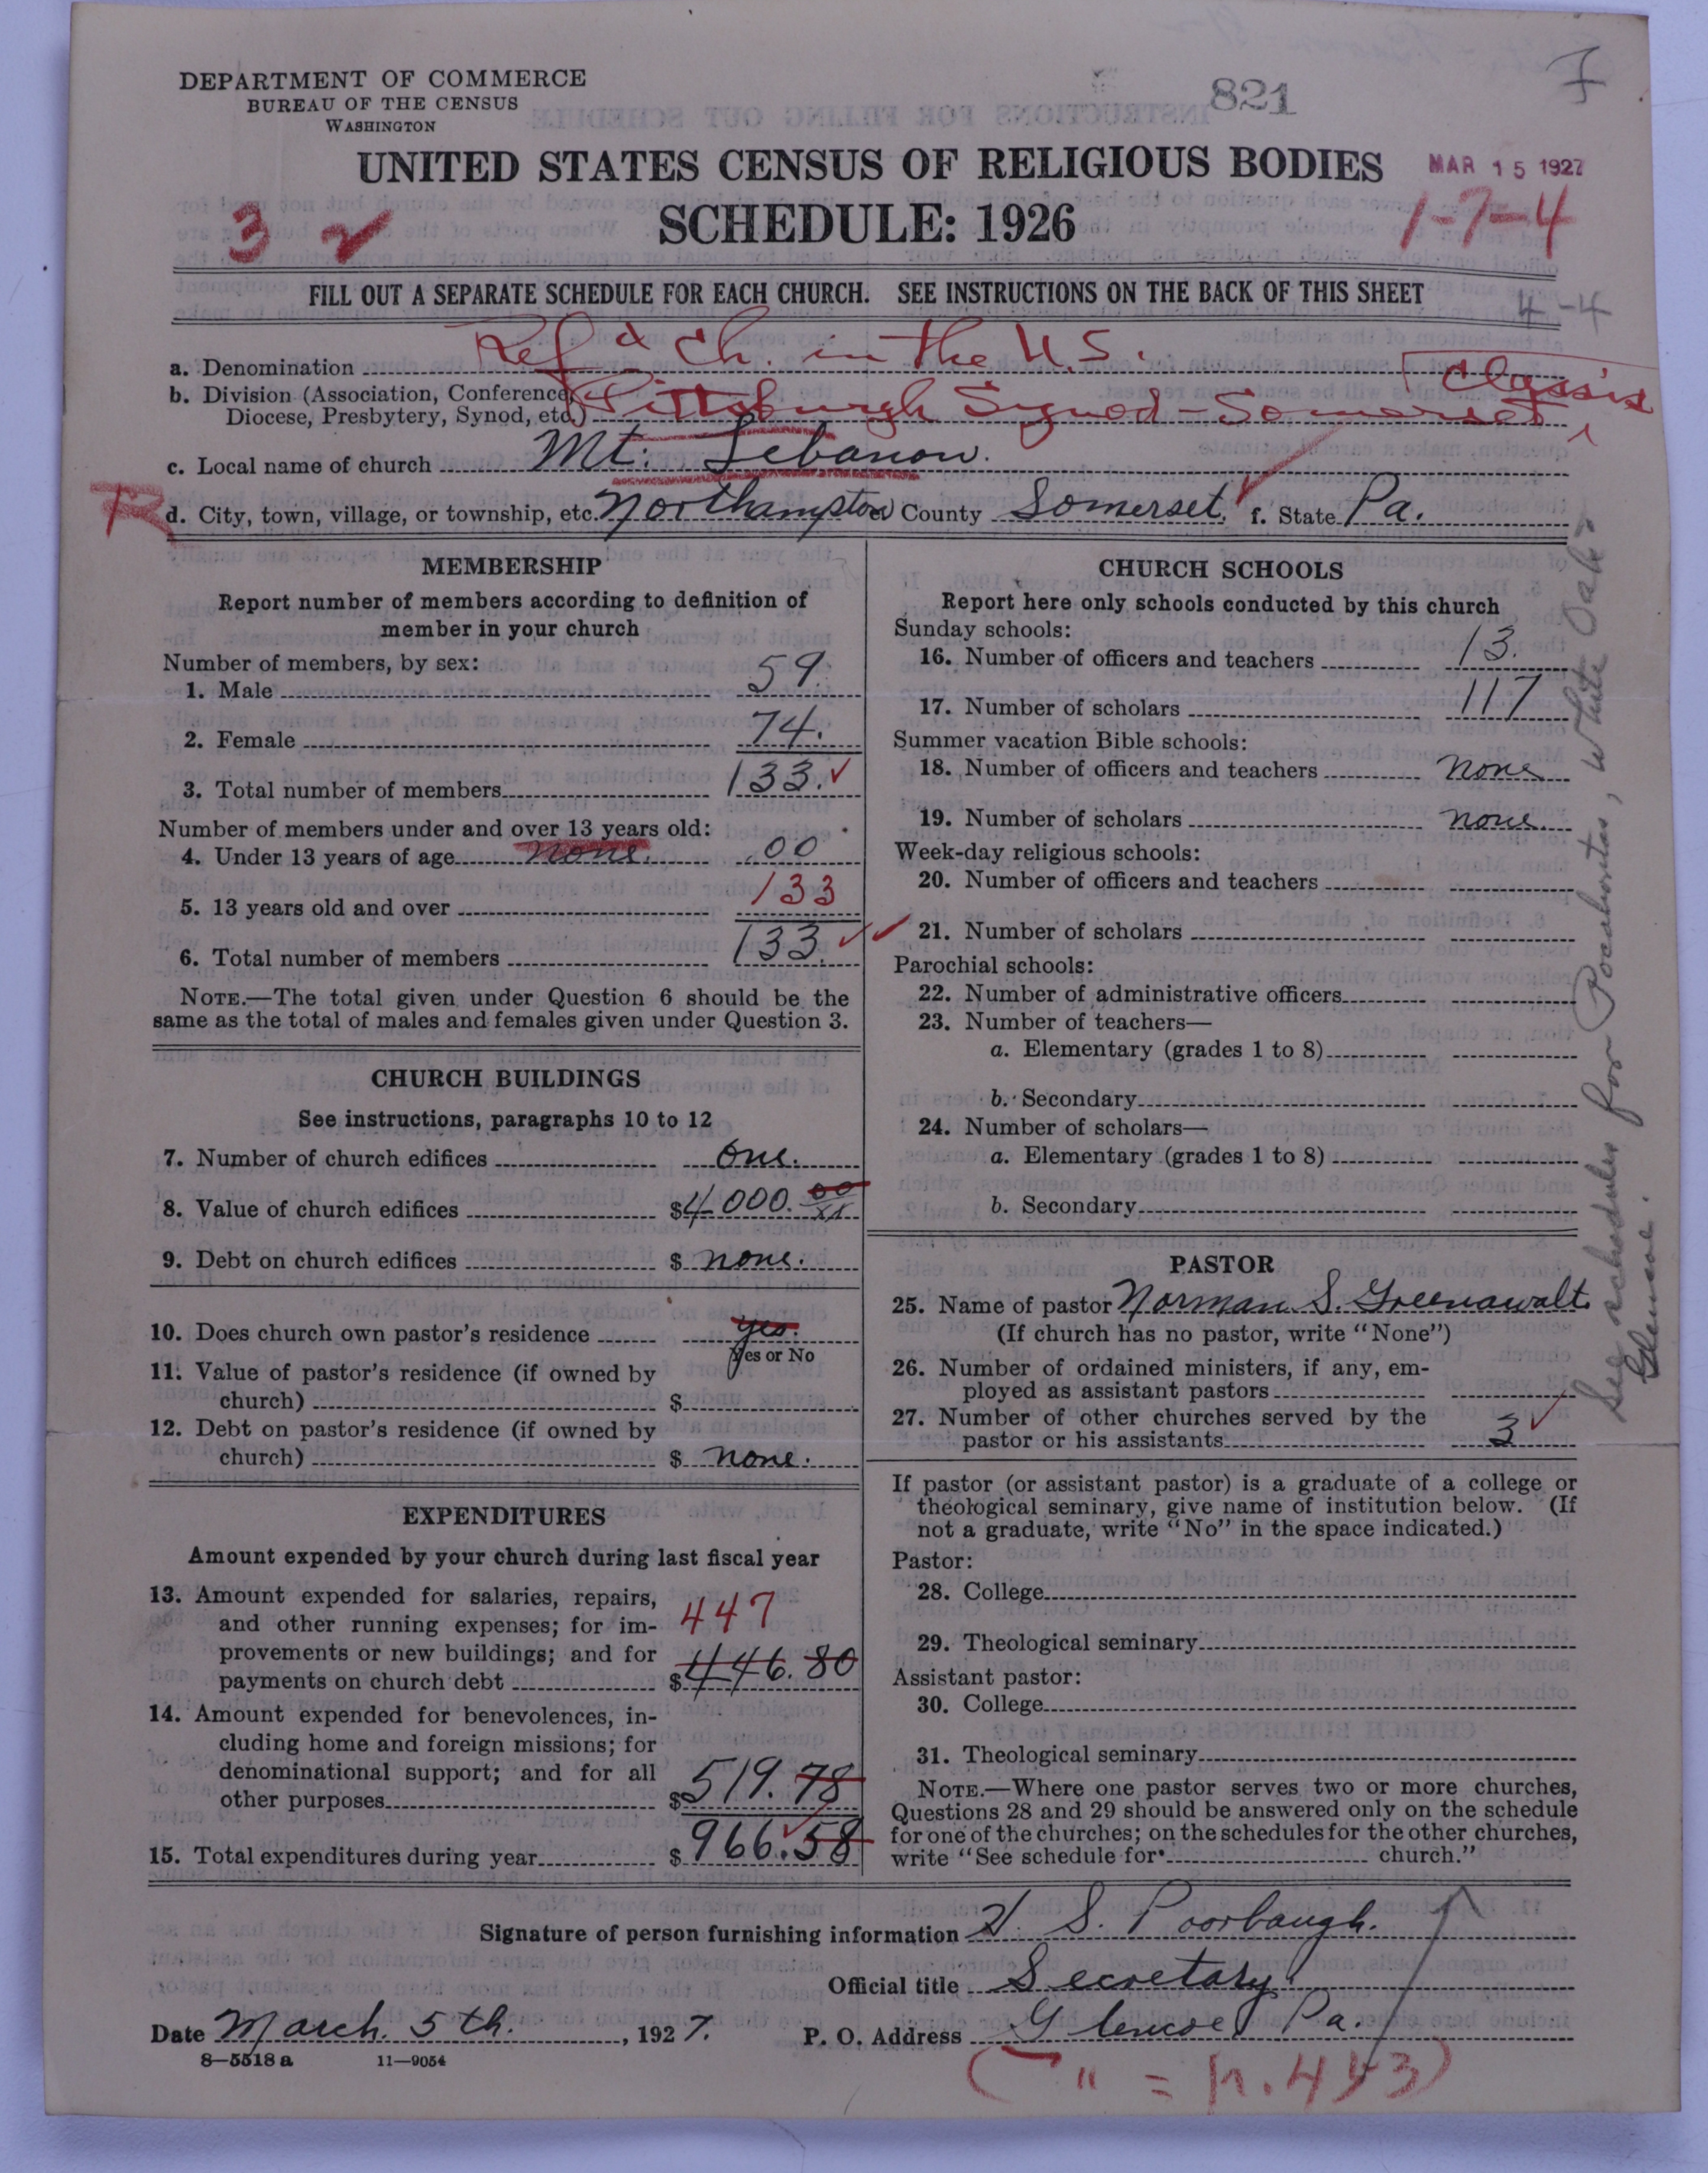 DEPARTMENT OF COMMERCE
BUREAU OF THE CENSUS
WASHINGTON
821
UNITED STATES CENSUS OF RELIGIOUS BODIES
MAR 15 1927
SCHEDULE: 1926
3
1-7-4
FILL OUT A SEPARATE SCHEDULE FOR EACH CHURCH. SEE INSTRUCTIONS ON THE BACK OF THIS SHEET
4-4
a. Denomination Ref'd Ch. in the U.S.
b. Division (Association, Conference, Diocese, Presbytery, Synod, etc.) Pittsburgh Synod - Somerset Classis
c. Local name of church Mt. Lebanon.
R d. City, town, village, or township, etc. Northampton County Somerset, f. State Pa.
MEMBERSHIP
Report number of members according to definition of
member in your church
Number of members, by sex:
1. Male 59.
2. Female 74.
3. Total number of members 133.
Number of members under and over 13 years old:
4. Under 13 years of age none. 00
5. 13 years old and over 133
6. Total number of members 133.
NOTE.—The total given under Question 6 should be the
same as the total of males and females given under Question 3.
CHURCH BUILDINGS
See instructions, paragraphs 10 to 12
7. Number of church edifices One.
8. Value of church edifices $4000. 00/xx
9. Debt on church edifices $ none.
10. Does church own pastor's residence yes.
Yes or No
11. Value of pastor's residence (if owned by
church) $
12. Debt on pastor's residence (if owned by
church) $ none.
EXPENDITURES
Amount expended by your church during last fiscal year
13. Amount expended for salaries, repairs,
and other running expenses; for im-
provements or new buildings; and for
payments on church debt 447 $446.80
14. Amount expended for benevolences, in-
cluding home and foreign missions; for
denominational support; and for all
other purposes $519.78
15. Total expenditures during year $966.58
CHURCH SCHOOLS
Report here only schools conducted by this church
Sunday schools:
16. Number of officers and teachers 13.
17. Number of scholars 117
Summer vacation Bible schools:
18. Number of officers and teachers none
19. Number of scholars none
Week-day religious schools:
20. Number of officers and teachers
21. Number of scholars
Parochial schools:
22. Number of administrative officers
23. Number of teachers—
a. Elementary (grades 1 to 8)
b. Secondary
24. Number of scholars—
a. Elementary (grades 1 to 8)
b. Secondary
PASTOR
25. Name of pastor Norman S. Greenawalt
(If church has no pastor, write "None")
26. Number of ordained ministers, if any, em-
ployed as assistant pastors
27. Number of other churches served by the
pastor or his assistants 3
If pastor (or assistant pastor) is a graduate of a college or
theological seminary, give name of institution below. (If
not a graduate, write "No" in the space indicated.)
Pastor:
28. College
29. Theological seminary
Assistant pastor:
30. College
31. Theological seminary
NOTE.—Where one pastor serves two or more churches,
Questions 28 and 29 should be answered only on the schedule
for one of the churches; on the schedules for the other churches,
write "See schedule for church."
See schedules for Pocahontas, White Oak
Glencoe.
Signature of person furnishing information H. S. Poorbaugh.
Official title Secretary
Date March. 5th., 1927. P. O. Address Glencoe Pa.
8—5518 a 11—9054